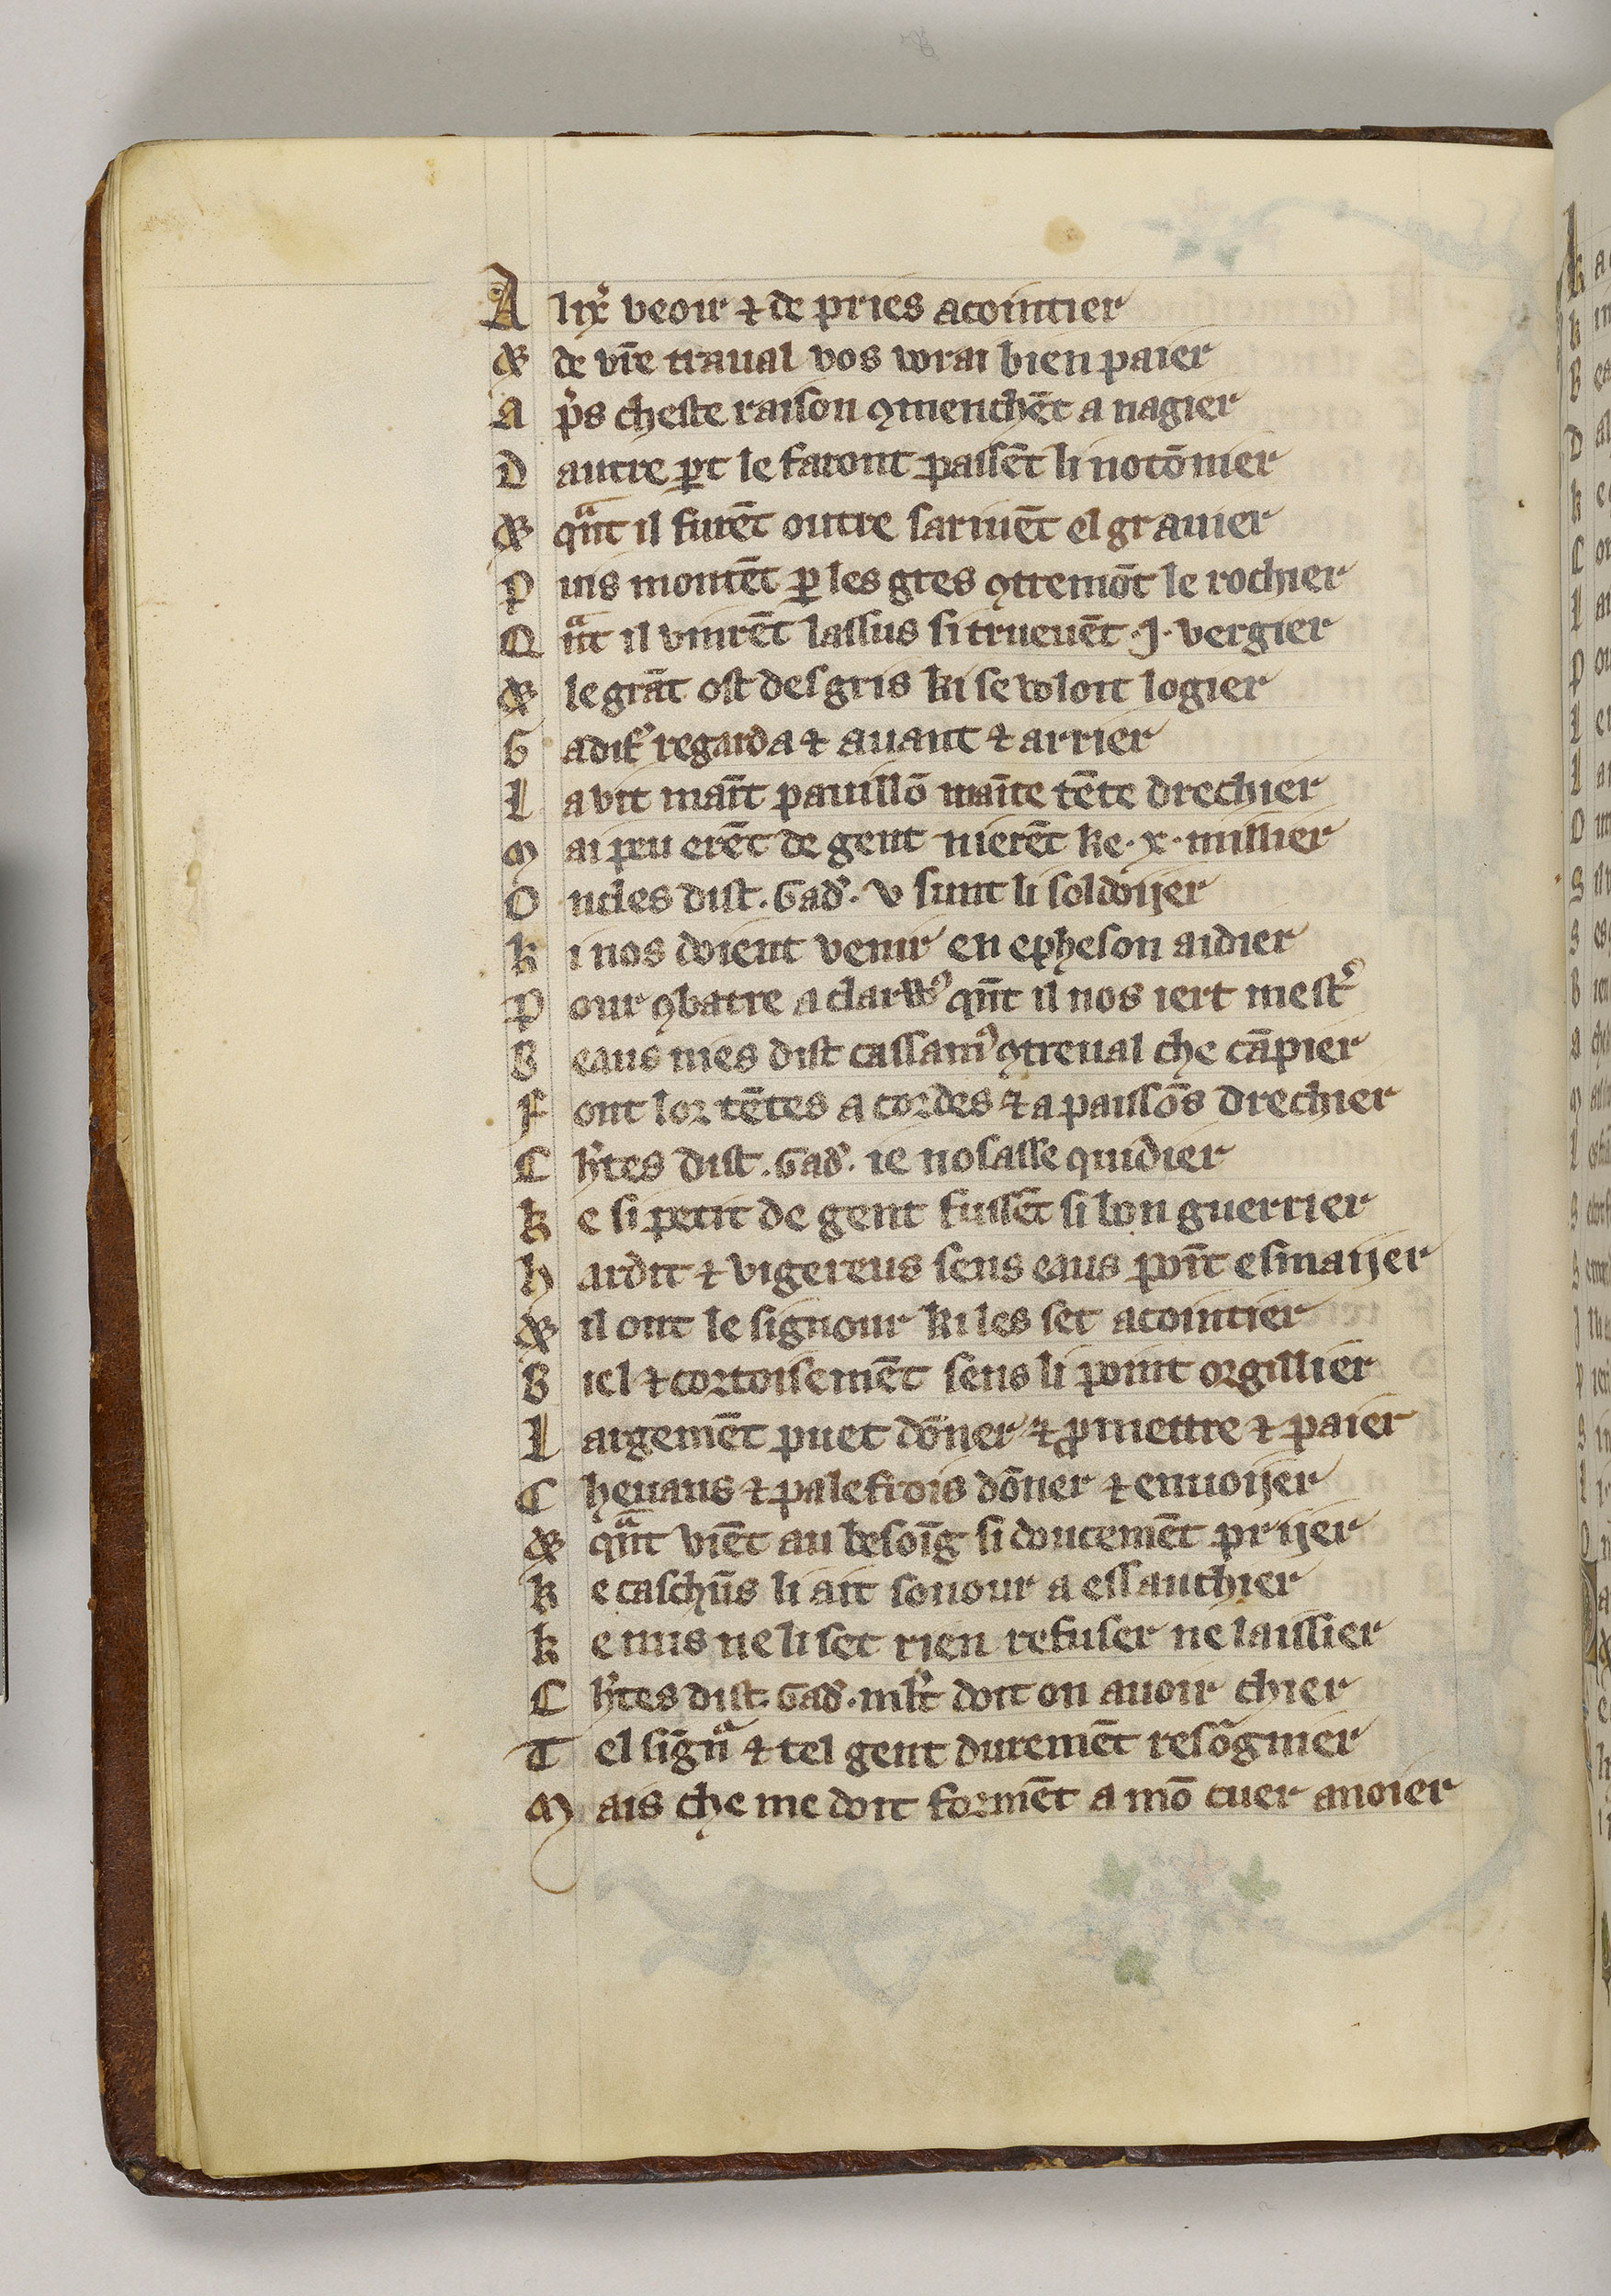 A lix̾ veoir ⁊ de pries acointier
Et de vr̄e traual vos vorai bien paier
A p̾s cheste raison ꝯmenchēt a nagier
D autre ꝑt le faront passēt li notōnier
Et qᵃnt il furēt outre sariuēt el grauier
P uis montēt ꝑ les gres ꝯtremōt le rochier
Q ᵃnt il vinrēt lassus si trueuēt .J. vergier
Et le grāt ost des gris ki se voloit logier
G adif̾ regarda ⁊ auant ⁊ arrier
L a vit mait̄ pauillō maīte tēte drechier
M ai peu erēt de gent nierēt ke .x. millier
O ncles dist .Gad̾. v sunt li soldoijer
K i nos doient venir en epheson aidier
P our ꝯbatre a clarꝰ qn̄t il nos iert mest̾
B eaus nies dist cassamꝰ ꝯtreual che cāpier
F ont lor tētes a cordes ⁊ a paissōs drechier
C h̾tes dist .Gad̾. ie nosasse quidier
K e si petit de gent fuissēt si bon guerrier
H ardit ⁊ vigereus sens eaus poīt esmaijer
Et il ont le signour ki les set acointier
B iel ⁊ cortoisemēt sens li point orgillier
L argemēt puet dōner ⁊ ꝓmettre ⁊ paier
C heuaus ⁊ palefrois dōner ⁊ enuoijer
Et qᵃnt viēt au besoīg si doucemēt prijer
K e caschūs li ait sonour a essauchier
K e nus ne li set rien refuser ne laissier
C h̾tes dist .Gad̾. mlt̄ doit on auoir chier
T el sign̄ᵃ ⁊ tel gent duremēt resōgnier
M ais che me doit formēt a mō cuer anoier